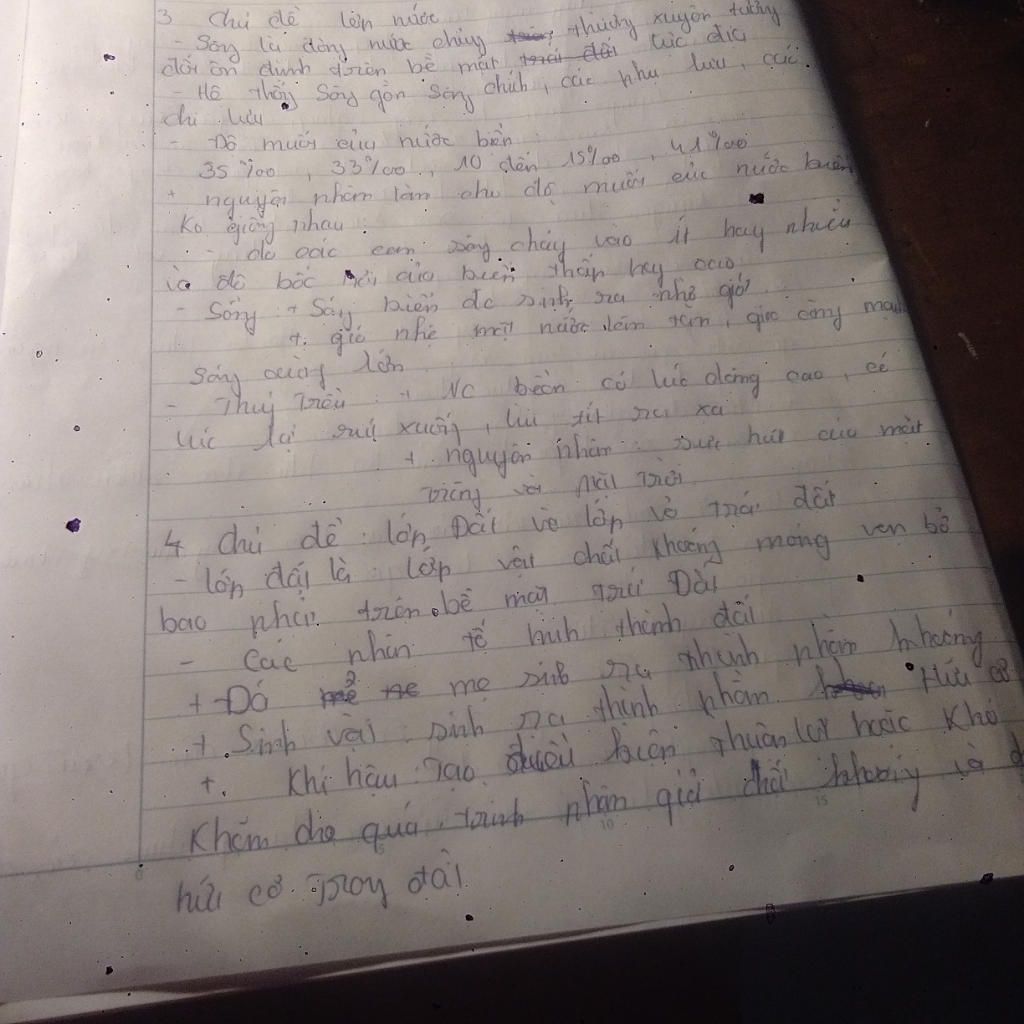 3 Chủ đề lớp nước
- Sông là dòng nước chảy thường xuyên tương
đối ổn định trên bề mặt lục địa
- Hệ thống sông gồm sông chính, các phụ lưu, các
chi lưu
- Độ muối của nước biển
35‰, 33‰, 10 đến 15‰, 41‰
+ nguyên nhân làm cho độ muối của nước biển
ko giống nhau:
- do các con sông chảy vào ít hay nhiều
và độ bốc hơi của biển thấp hay cao
- Sóng + Sóng biển đc sinh ra nhờ gió
+ gió nhẹ mặt nước lăn tăn, gió càng mạnh
sóng càng lớn
- Thuỷ triều: + NC biển có lúc dâng cao, có
lúc lại rút xuống, lùi tít ra xa
+ nguyên nhân: sức hút của mặt
trăng và mặt trời
4 Chủ đề: lớp Đất và lớp vỏ trái đất
- lớp đất là: lớp vật chất khoáng mỏng vụn bở
bao phủ trên bề mặt trái Đất
- Các nhân tố hình thành đất
+ Đá mẹ sinh ra thành phần khoáng
+ Sinh vật: sinh ra thành phần Hữu cơ
+ Khí hậu: Tạo điều kiện thuận lợi hoặc khó
khăn cho quá trình phân giải chất khoáng và
hữu cơ trong đất